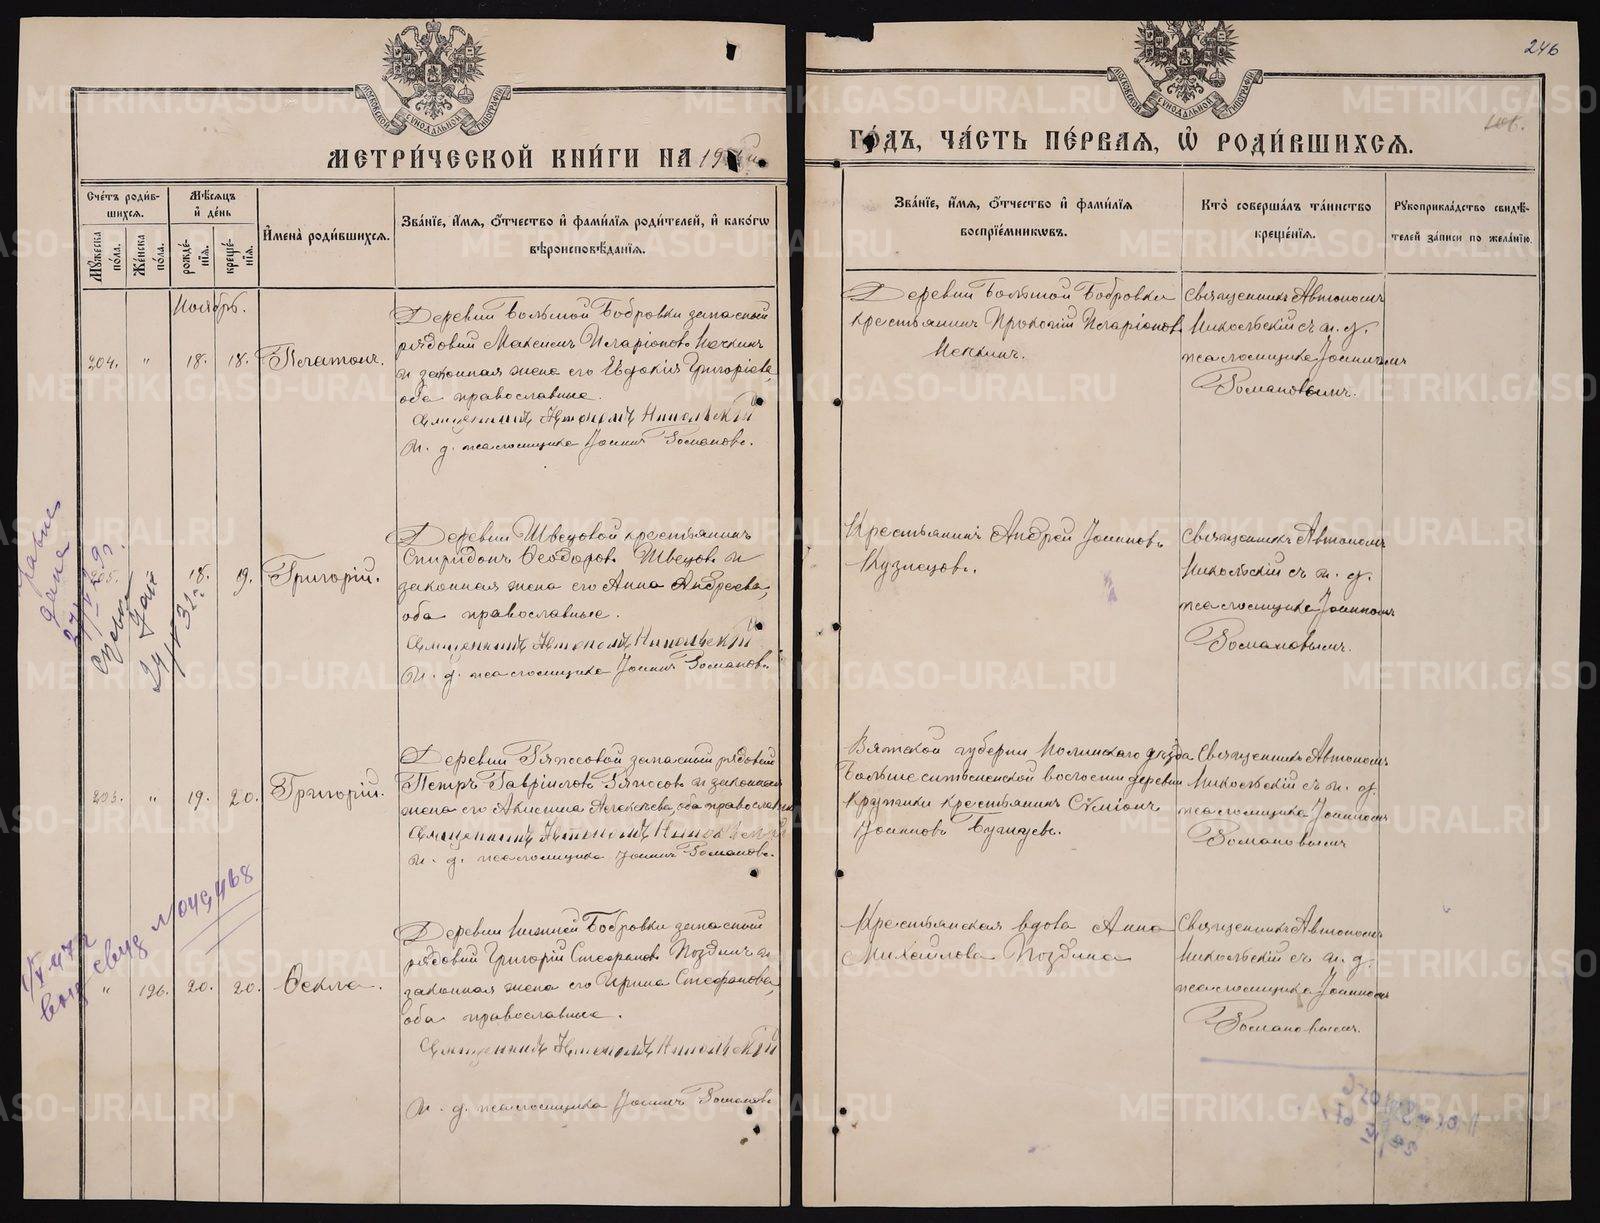 246
МОСКОВСКОЙ СУНОДАЛЬНОЙ ТИПОГРАФІИ
МОСКОВСКОЙ СУНОДАЛЬНОЙ ТИПОГРАФІИ
МЕТРИ́ЧЕСКОЙ КНИ́ГИ НА 19
ГО́ДЪ, ЧА́СТЬ ПЕ́РВАЯ, Ѡ҆ РОДИ́ВШИХСЯ.
Сче́тъ роди́в-
шихся.
Мѣ́сяцъ
и҆ де́нь
Мꙋ́жеска
по́ла.
Же́нска
по́ла.
рожде́-
нїя.
креще́-
нїя.
И҆мена̀ роди́вшихся.
Зва́нїе, и҆́мя, ѻ҆́тчество и҆ фами́лїя роди́телей, и҆ како́гѡ
вѣроисповѣ́данїя.
Зва́нїе, и҆́мя, ѻ҆́тчество и҆ фами́лїя
воспрїе́мникѡвъ.
Кто̀ соверша́лъ та́инство
креще́нїя.
Рꙋкоприкла́дство свидѣ́-
телей за́писи по жела́нїю.
Ноябрь.
204. " 18. 18. Платонъ.
Деревни Большой Бобровки запасный
рядовой Максимъ Иларіоновъ
и законная жена его Евдокія Григоріева,
оба православные.
Священникъ Автономъ Никольскій
и. д. псаломщика Іоаннъ Романовъ.
Деревни Большой Бобровки
крестьянинъ Прокопій Иларіоновъ
Священникъ Автономъ
Никольскій съ и. д.
псаломщика Іоанномъ
Романовымъ.
18. 19. Григорій.
Деревни Швецовой крестьянинъ
Спиридонъ Ѳеодоровъ Швецовъ и
законная жена его Анна Андреева,
оба православные.
Священникъ Автономъ Никольскій
и. д. псаломщика Іоаннъ Романовъ.
Крестьянинъ Андрей Іоанновъ
Кузнецовъ.
Священникъ Автономъ
Никольскій съ и. д.
псаломщика Іоанномъ
Романовымъ.
" 19. 20. Григорій.
Деревни Ряпосовой запасный рядовой
Петръ Гавріиловъ Ряпосовъ и законная
жена его Акилина Алексѣева, оба православные
Священникъ Автономъ Никольскій
и. д. псаломщика Іоаннъ Романовъ.
Вятской губерніи Нолинскаго уѣзда
волости деревни
крестьянинъ Сѷмеонъ
Іоанновъ
Священникъ Автономъ
Никольскій съ и. д.
псаломщика Іоанномъ
Романовымъ
" 196. 20. 20. Ѳекла.
Деревни Нижней Бобровки запасный
рядовой Григорій Стефановъ Поздинъ и
законная жена его Ирина Стефанова,
оба православные.
Священникъ Автономъ Никольскій
и. д. псаломщика Іоаннъ Романовъ
Крестьянская вдова Анна
Михайлова Поздина
Священникъ Автономъ
Никольскій съ и. д.
псаломщика Іоанномъ
Романовымъ.
METRIKI.GASO-URAL.RU